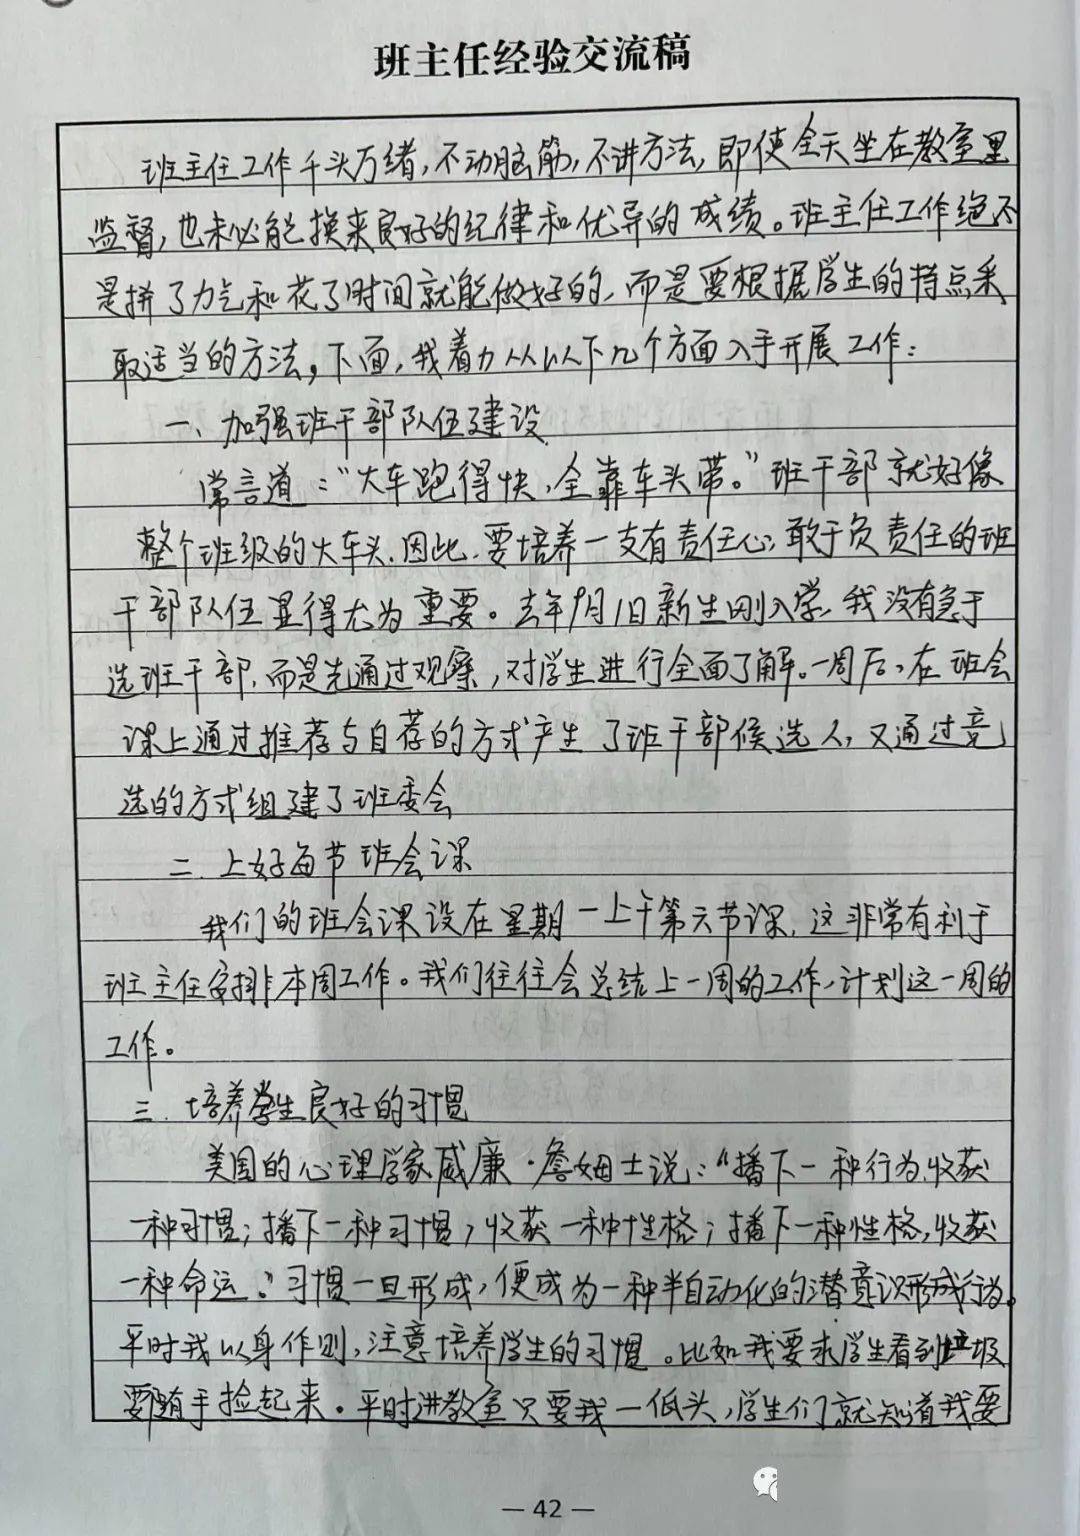 班主任经验交流稿
班主任工作千头万绪,不动脑筋,不讲方法,即使全天坐在教室里
监督,也未必能换来良好的纪律和优异的成绩。班主任工作绝不
是拼了力气和花了时间就能做好的,而是要根据学生的特点采
取适当的方法。下面,我着力从以下几个方面入手开展工作:
一、加强班干部队伍建设
常言道:“火车跑得快,全靠车头带。”班干部就好像
整个班级的火车头.因此,要培养一支有责任心,敢于负责任的班
干部队伍显得尤为重要。去年9月1日新生刚入学,我没有急于
选班干部,而是先通过观察,对学生进行全面了解。一周后,在班会
课上通过推荐与自荐的方式产生了班干部候选人,又通过竞
选的方式组建了班委会
二.上好每节班会课
我们的班会课设在星期一上午第六节课,这非常有利于
班主任安排本周工作。我们往往会总结上一周的工作,计划这一周的
工作。
三.培养学生良好的习惯
美国的心理学家威廉·詹姆士说:“播下一种行为,收获
一种习惯;播下一种习惯,收获一种性格;播下一种性格,收获
一种命运。”习惯一旦形成,便成为一种半自动化的潜意识形成行为。
平时我以身作则,注意培养学生的习惯。比如我要求学生看到垃圾
要随手捡起来。平时进教室只要我一低头,学生们就知道我要
— 42 —